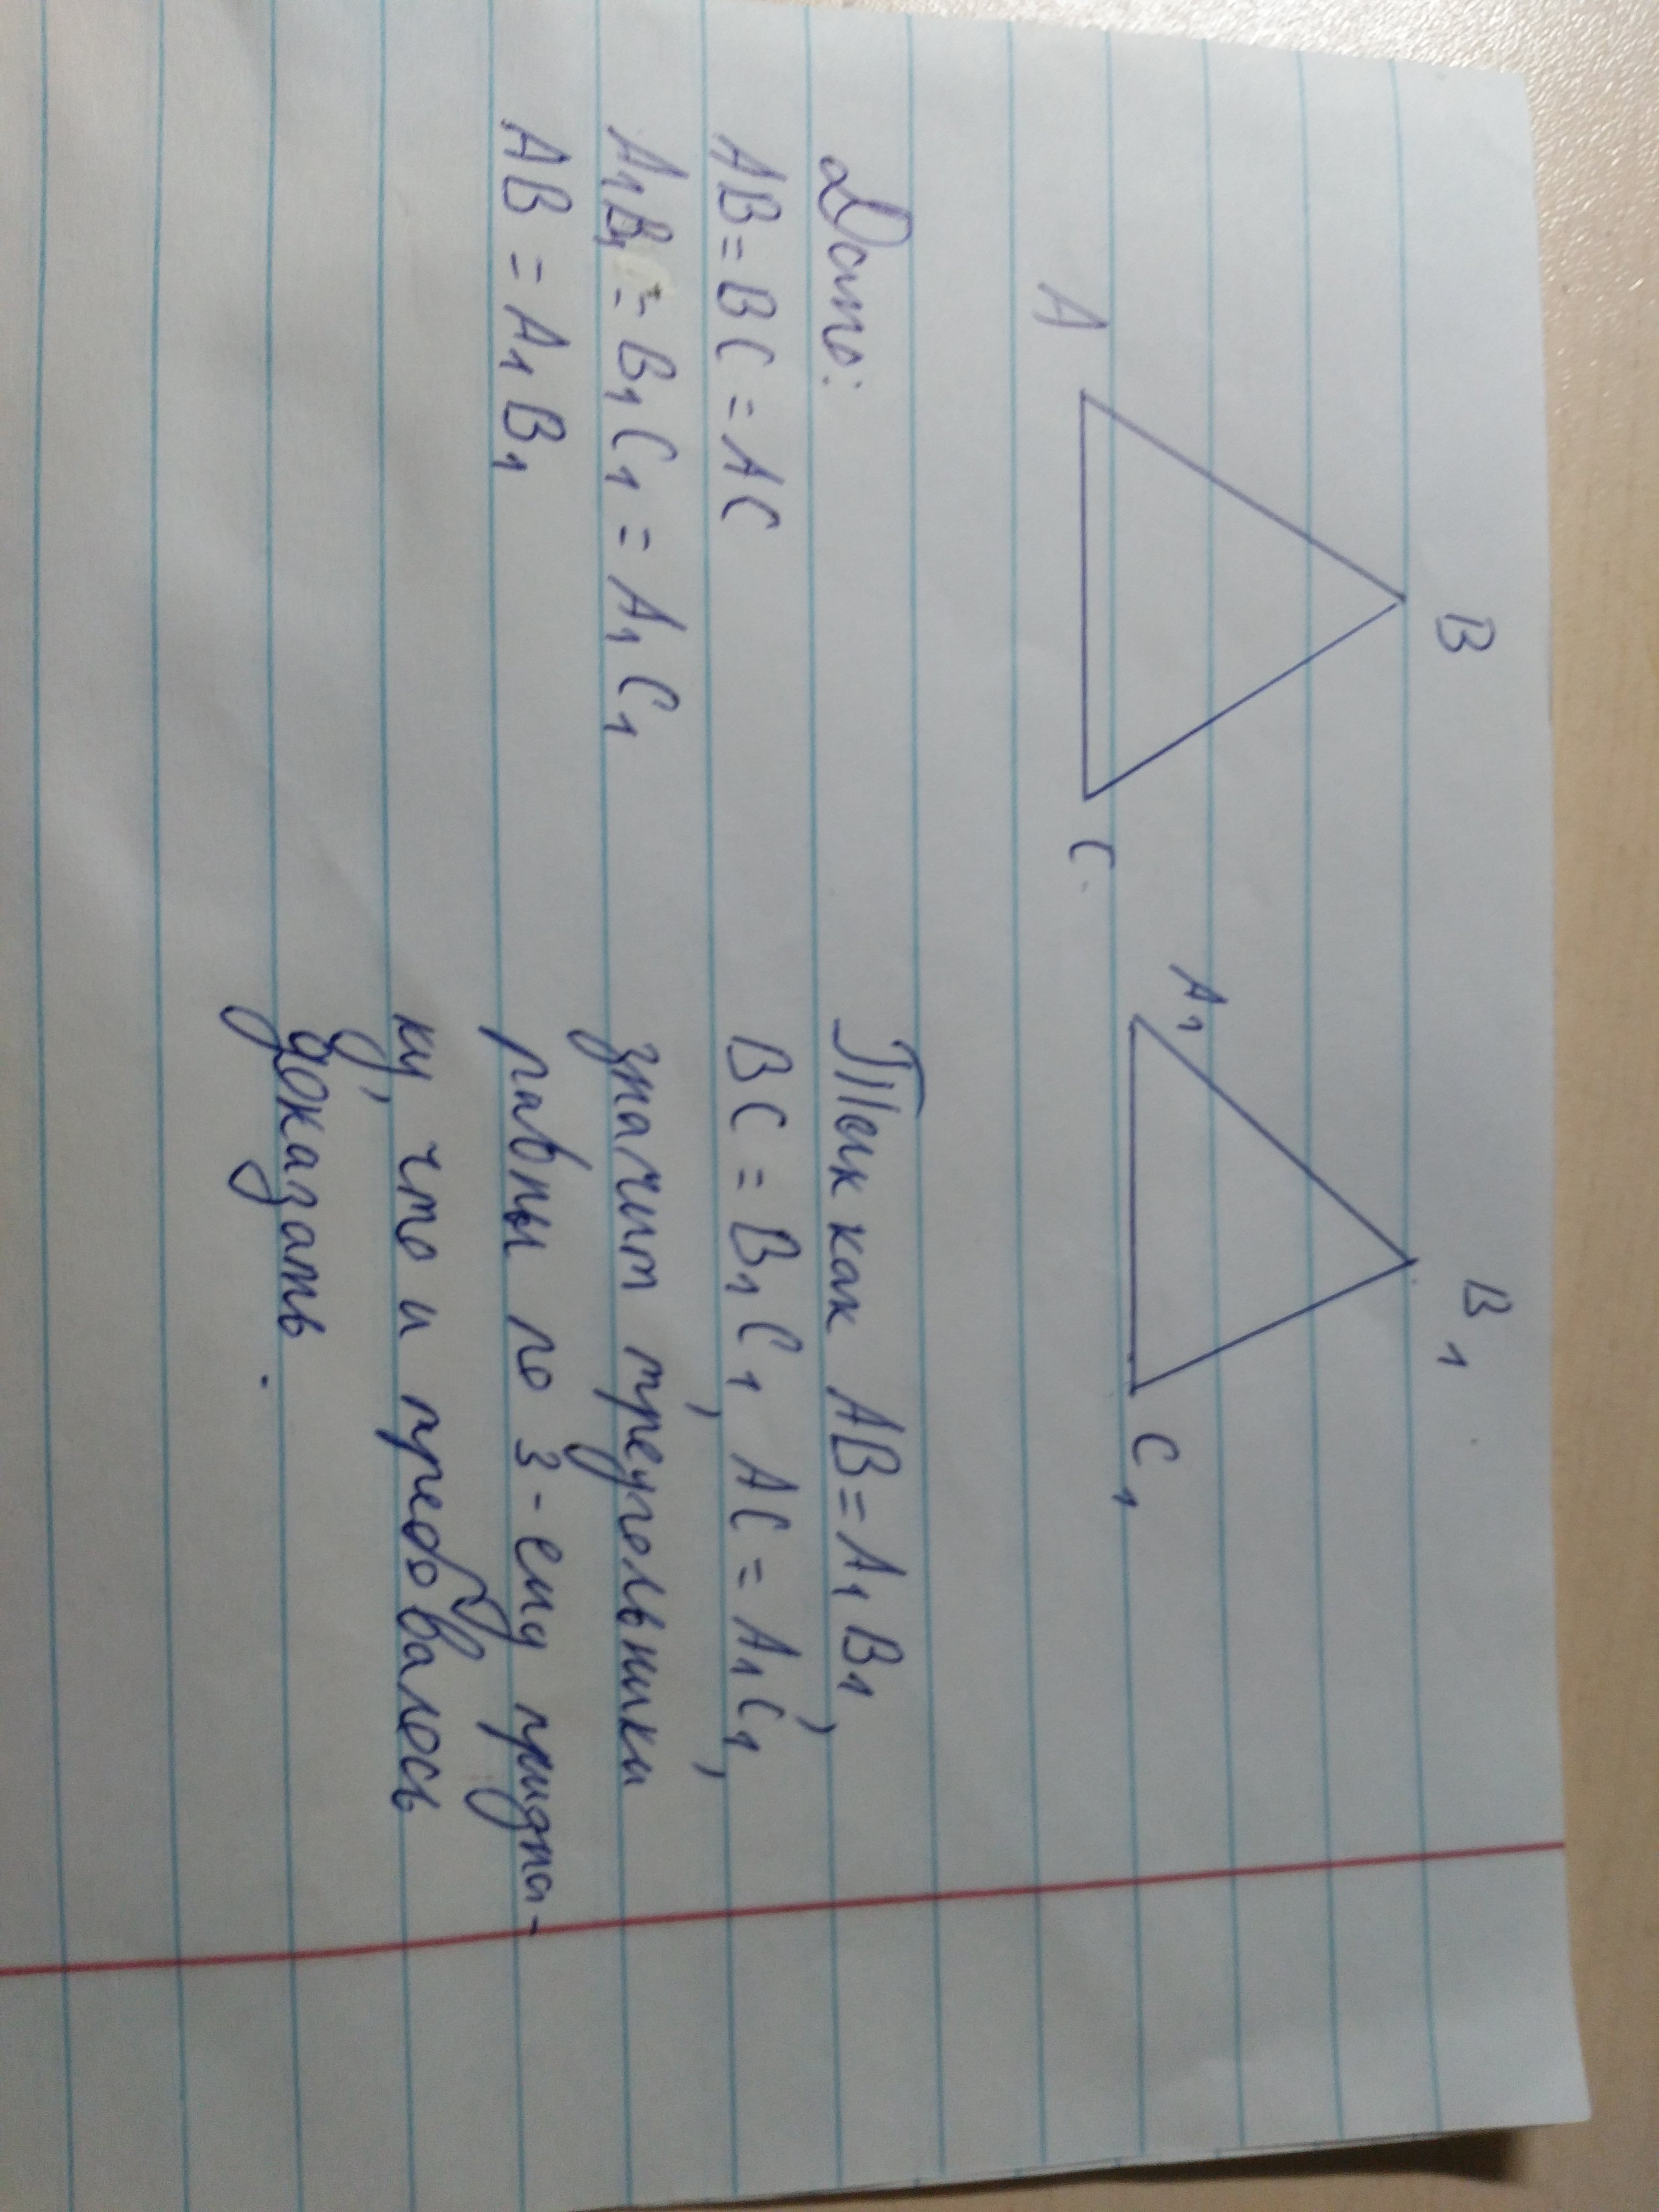 B B₁
A C A₁ C₁
Дано:
AB = BC = AC
A₁B₁ = B₁C₁ = A₁C₁
AB = A₁B₁
Так как AB = A₁B₁,
BC = B₁C₁, AC = A₁C₁,
значит треугольники
равны по 3-ему призна-
ку, что и требовалось
доказать.